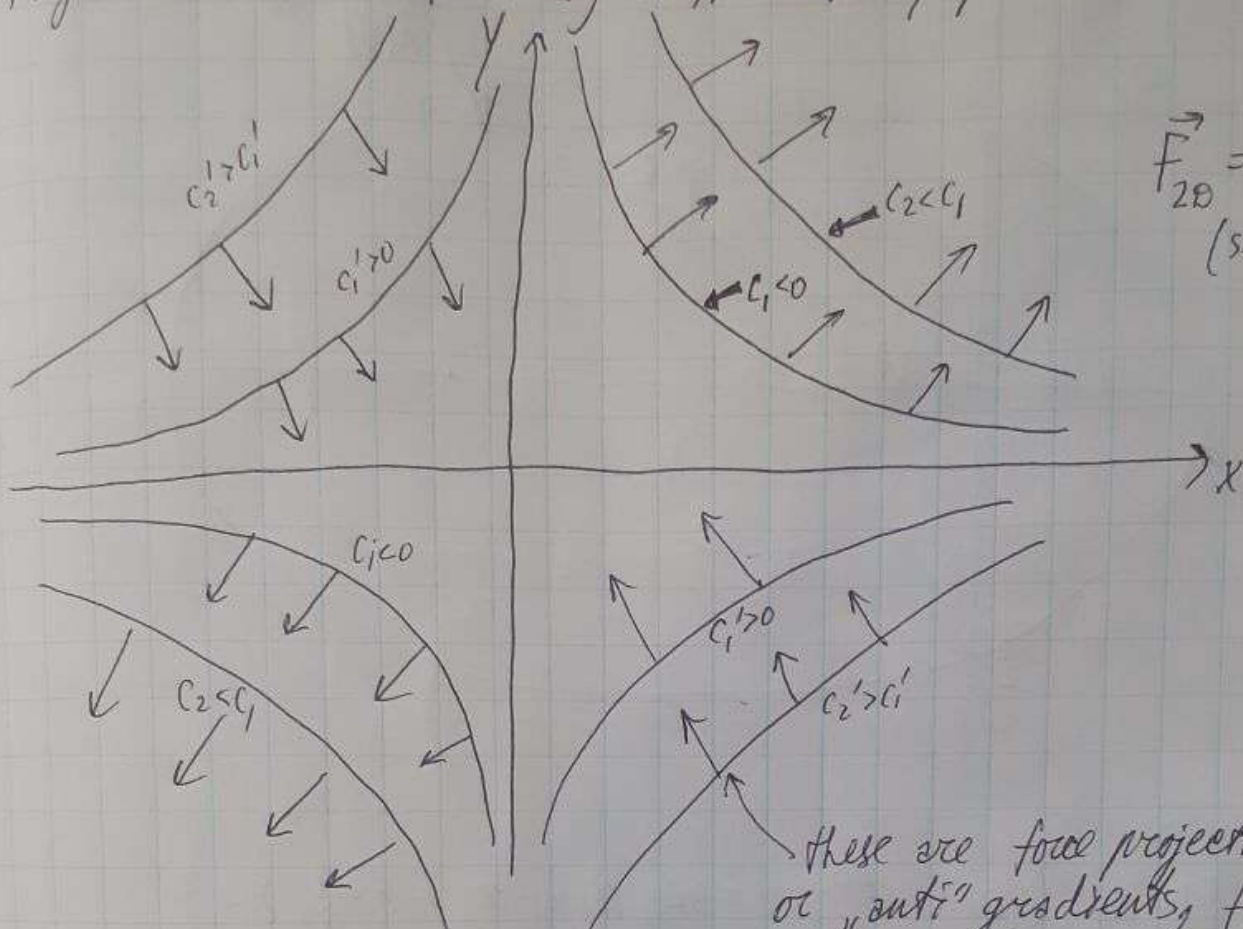 y
C₂'>C₁'
C₁'>0
C₂<C₁
C₁<0
F⃗₂D =
(s
x
C₁<0
C₂<C₁
C₁'>0
C₂'>C₁'
these are force project
or „anti" gradients, f